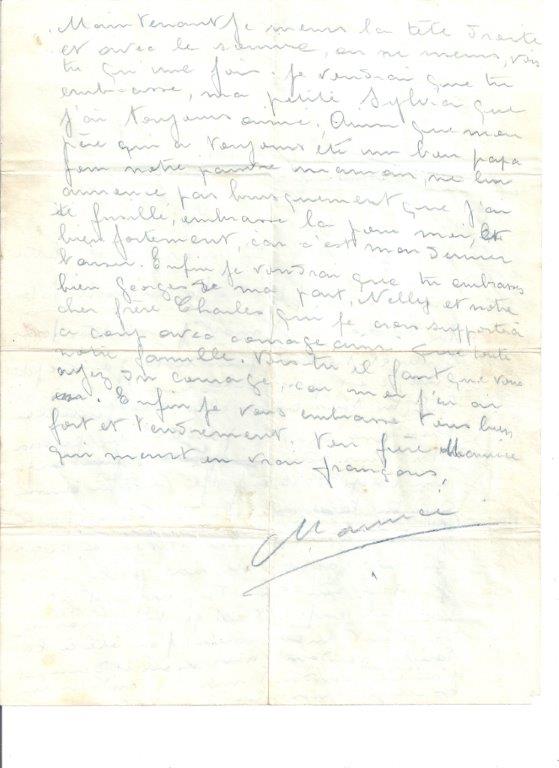 Maintenant je meurs la tête droite
et avec le sourire, on ne meurs, vois
tu qu'une fois. Je voudrai que tu
embrasse, ma petite Sylvia que
j'ai toujours aimé. Ainsi que mon
père qui a toujours été un bon papa
pour notre pauvre maman, ne lui
annonce pas brusquement que j'ai
été fusillé, embrasse la pour moi, 
bien fortement, car c'est mon dernier
baiser. Enfin je voudrai que tu embrasse
bien Georges de ma part, Nelly et notre
cher frère Charles qui je crois supportera
ce coup avec courage ainsi que toute
notre famille. Vois tu il faut que vous
ayez du courage, car moi j'en ai
eu. Enfin je vous embrasse tous bien
fort et tendrement. Ton frère Maurice
qui meurt en vrai français.
Maurice